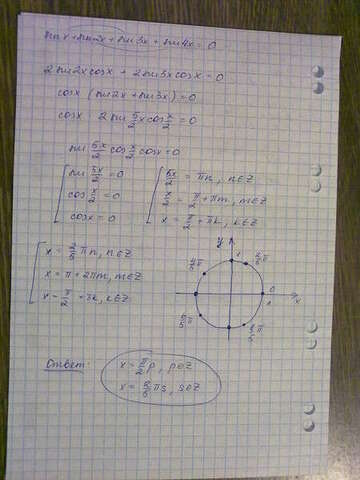 sin x + sin 2x + sin 3x + sin 4x = 0
2 sin 2x cos x + 2 sin 3x cos x = 0
cos x (sin 2x + sin 3x) = 0
cos x · 2 sin 5/2 x cos x/2 = 0
sin 5x/2 cos x/2 cos x = 0
[ sin 5x/2 = 0 [ 5x/2 = πn, n∈Z
cos x/2 = 0 x/2 = π/2 + πm, m∈Z
cos x = 0 x = π/2 + πk, k∈Z
y
[ x = 2/5 πn, n∈Z
x = π + 2πm, m∈Z
x = π/2 + πk, k∈Z
0
x
Ответ:
x = π/2 p, p∈Z
x = 2/5 πs, s∈Z